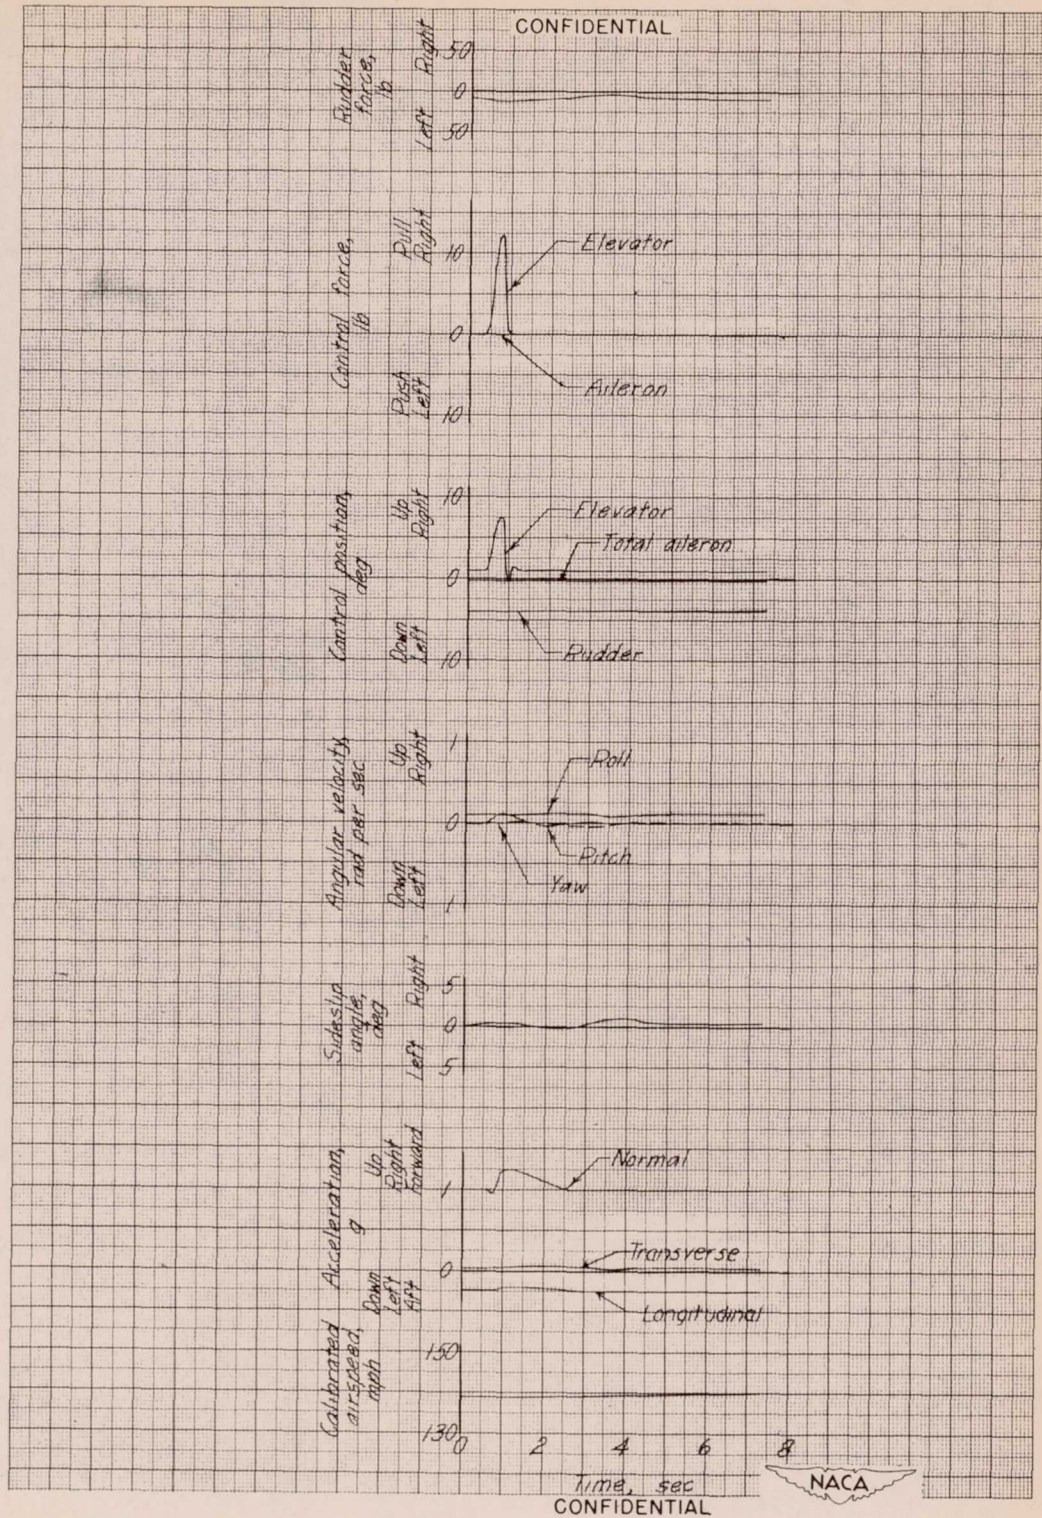 CONFIDENTIAL
Rudder
force,
lb
Left Right
50
0
50
Control force,
lb
Pull
Right
Push
Left
10
0
10
Elevator
Aileron
Control position,
deg
Up
Right
Down
Left
10
0
10
Elevator
Total aileron
Rudder
Angular velocity,
rad per sec
Up
Right
Down
Left
1
0
1
Roll
Pitch
Yaw
Sideslip
angle,
deg
Left Right
5
0
5
Acceleration,
g
Up
Right
Forward
Down
Left
Aft
1
0
Normal
Transverse
Longitudinal
Calibrated
airspeed,
mph
150
130
0 2 4 6 8
Time, sec
CONFIDENTIAL
NACA